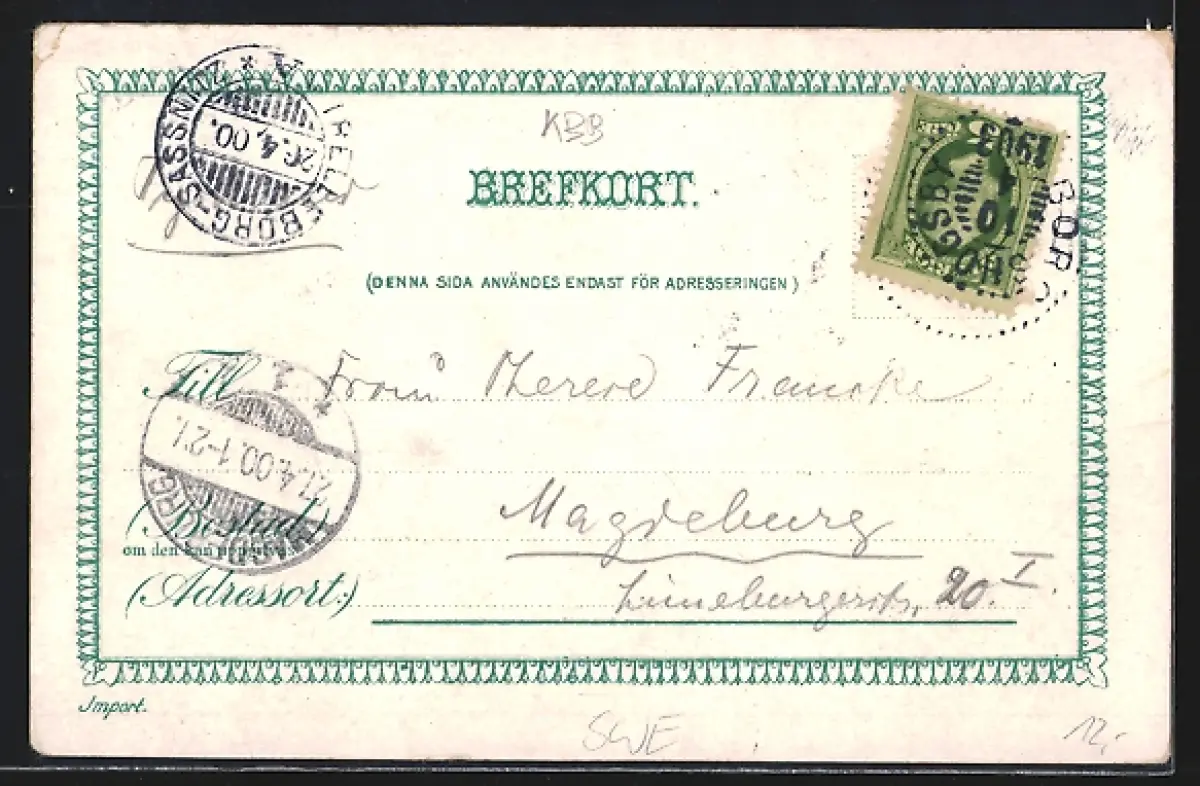 KBB
TRELLEBORG-SASSNITZ
20.4.00.
BREFKORT.
1903
10
(DENNA SIDA ANVÄNDES ENDAST FÖR ADRESSERINGEN)
Till Frau Therese Francke
21.4.00.1-2
(Bostad)
Magdeburg
om den kan uppgifvas
(Adressort:) Lüneburgerstr. 20. I.
Import.
SWE
12,-